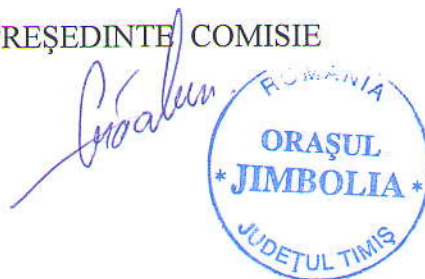 PREȘEDINTE COMISIE
ROMÂNIA
ORAŞUL
* JIMBOLIA *
JUDEŢUL TIMIŞ